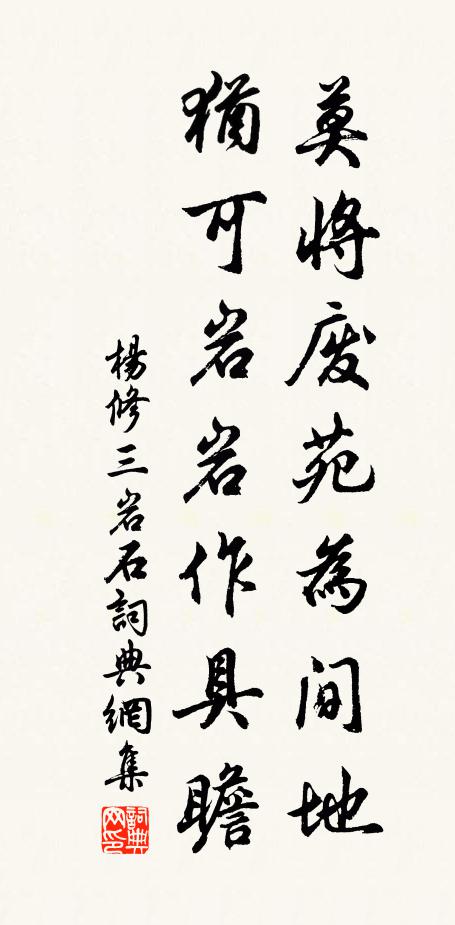 莫將廢苑為间地
猶可岩岩作具瞻
楊修三岩石詞典網集
詞典网印